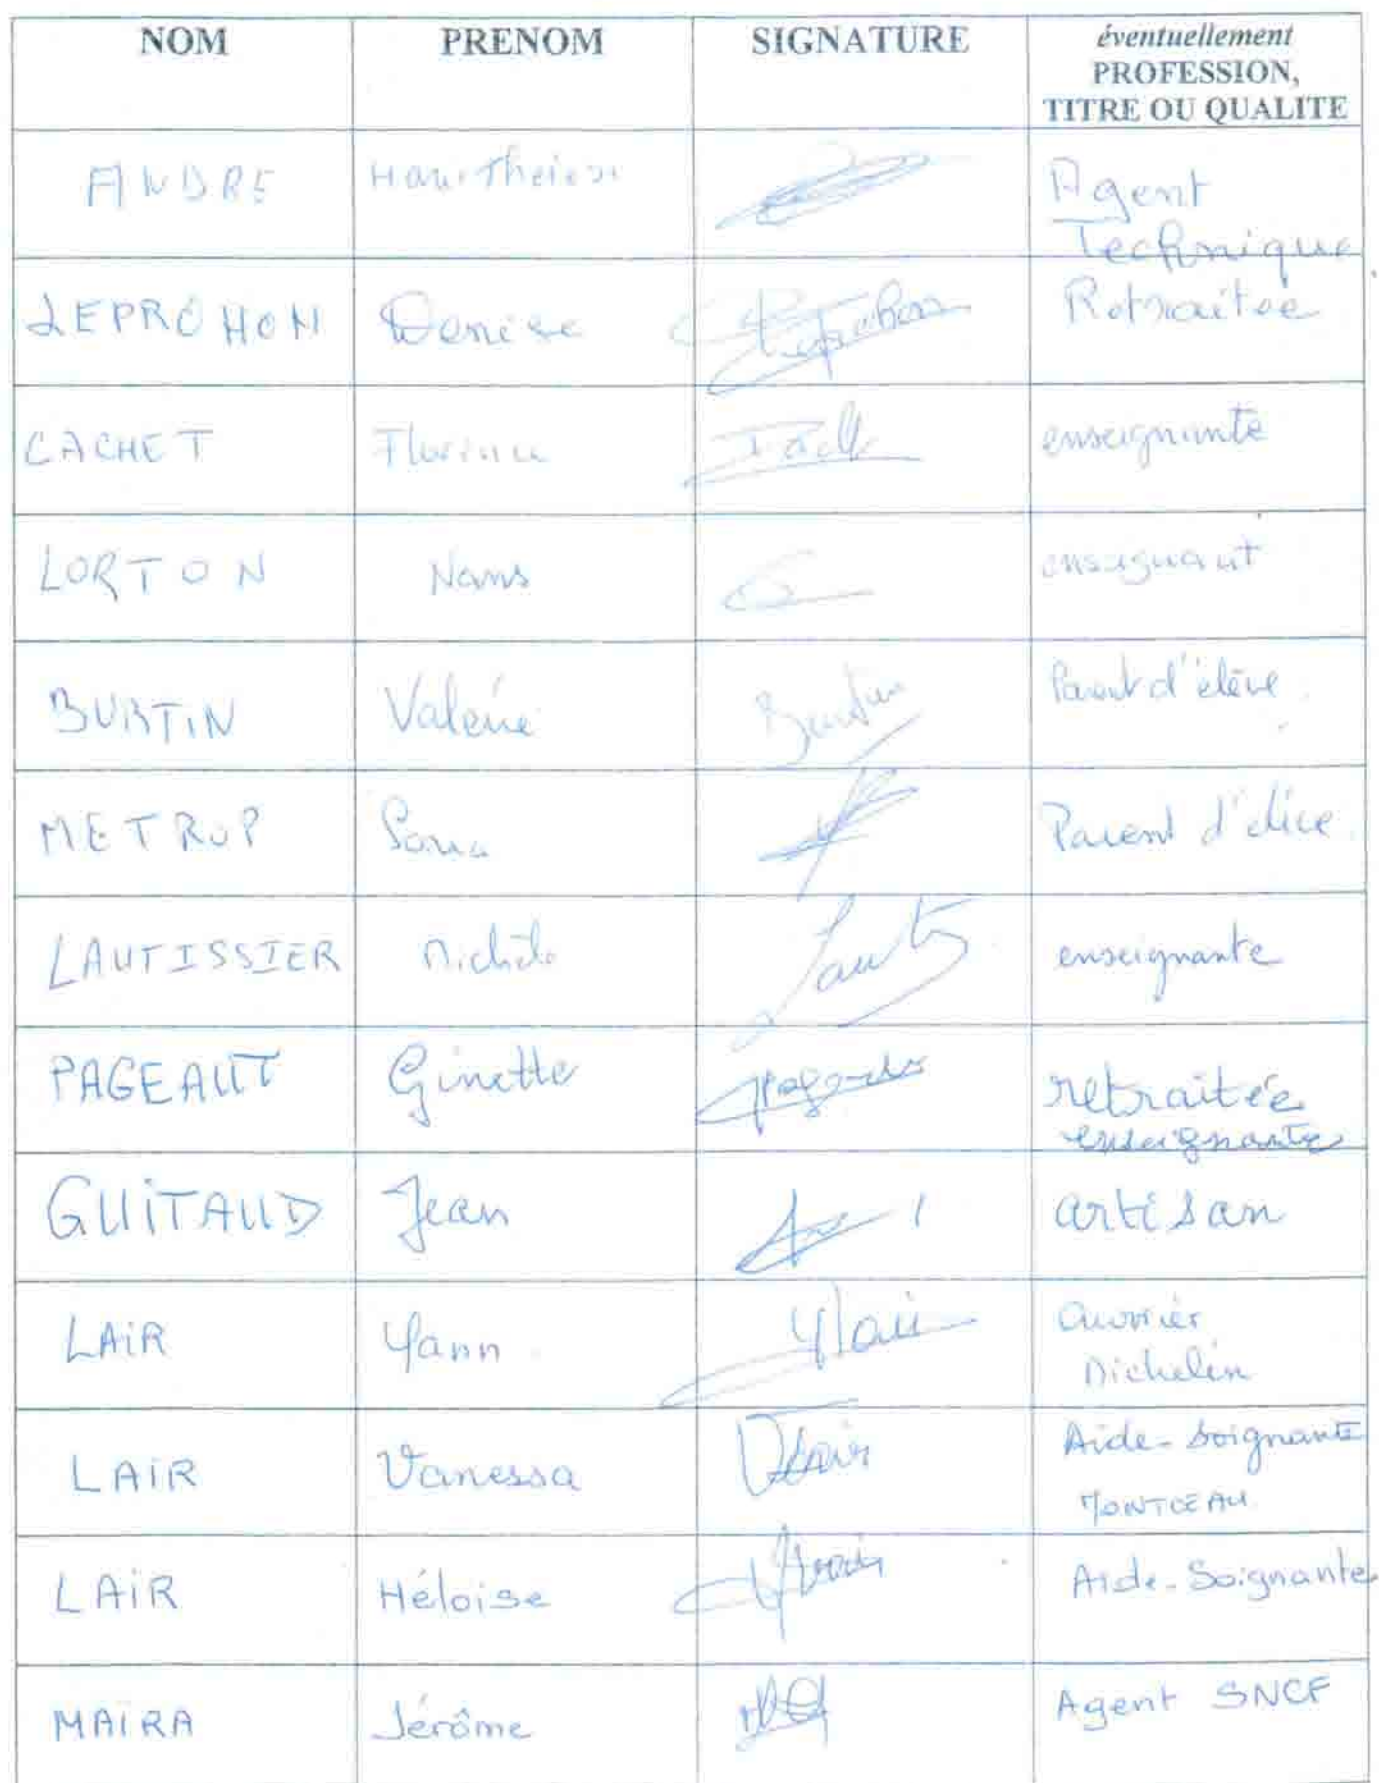 NOM PRENOM SIGNATURE éventuellement
PROFESSION,
TITRE OU QUALITE
ANDRE Agent
Technique
LEPROHON Denise Retraitée
CACHET Florence enseignante
LORTON Nans enseignant
BURTIN Valérie Burtin Parent d'élève
METROP Sonia Parent d'élève
LAUTISSIER Michèle enseignante
PAGEAUT Ginette retraitée
enseignante
GUITAUD Jean artisan
LAIR Yann YLair ouvrier
Michelin
LAIR Vanessa VLair Aide-Soignante
MONTCEAU
LAIR Héloïse Aide-Soignante
MAÏRA Jérôme Agent SNCF